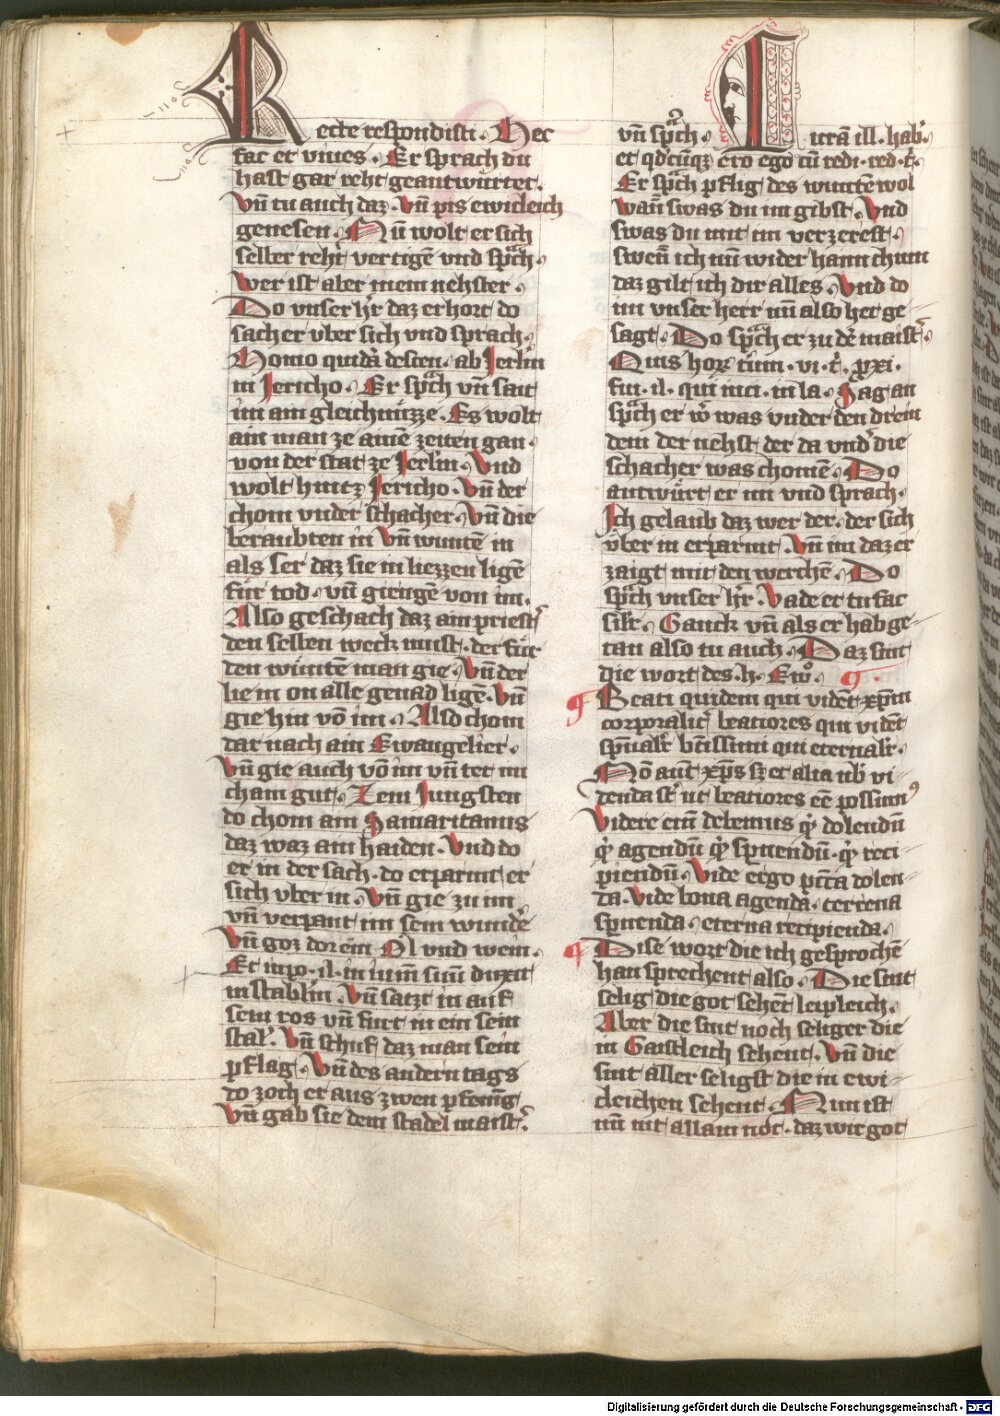 Recte respondisti. Hec
fac et viues. Er sprach du
hast gar reht geantwurtet.
Vn̄ tu auch daz. Vn̄ pis ewicleich
genesen. Nu wolt er sich
selber reht vertigē vnd sprach.
Wer ist aber mein nehster.
Do vnser h̄r daz erhort do
sach er vber sich vnd sprach.
Homo quidā descen. ab Jerl̄m
in Jericho. Er sprach vn̄ sait
im ain gleichnüzze. Es wolt
ain man ze ainē zeiten gan.
von der stat ze Jerl̄m. Vnd
wolt hintz Jericho. Vn̄ der
chom vnder schacher. Vn̄ die
beraubten in Vn̄ wuntē in
als ser daz sie in liezzen ligē
für tod. vn̄ giengē von im.
Also geschach daz ain priest̉
den selben weck must. der für
den wūntē man gie. Vn̄ der
lie in on alle genad ligē. Vn̄
gie hin vō im. Also chom
dar nach ain Ewangelier.
Vn̄ gie auch vō im vn̄ tet im
chain gut. Zem Jungsten
do chom ain Samaritanus
daz waz ain haiden. Vnd do
er in der sach. do erparmt er
sich vber in. Vn̄ gie zu im
vn̄ verpant im sein wundē
Vn̄ goz dor ein Öl vnd wein.
Et inpo. il. in ium̄ suū duxit
in stabl̄m. Vn̄ satzt in auf
sein ros vn̄ furt in ein sein
stal. Vn̄ schuf daz man sein
pflag. Vn̄ des andern tags
do zoch er aus zwen pfenīg
Vn̄ gab sie dem stadel maist̉.
vn̄ sprach. Curā ill. hab.
et qd̄cūq3 ero ego cū redi. red. t.
Er sprach pflig des wuntē wol
Wan̄ swas du im gibst. Vnd
swas du mit im verzerest.
swen̄ ich nū wider haim chum
daz gilt ich dir alles. Vnd do
im vnser herr nū also het ge
sagt. Do sprach er zu dē maist̉.
Quis hor. tiū. vi. t. pxi.
fu. il. qui inci. in la. Sag an
sprach er was vnder den drein
dem der nehst der da vnd̉ die
schacher was chomē. Do
antwürt er im vnd sprach.
Ich gelaub daz wer der. der sich
vber in erparmt. Vn̄ im daz er
zaigt mit den werchē. Do
sprach vnser h̄r. Vade et tu fac
sil̄r. Ganck vn̄ als er hab ge-
tan also tu auch. Daz sint
die wort des. h. Ew̄.
Beati quidem qui vidēt xp̄m
corporalit̉ beatiores qui vidēt
sp̄ualr̄ btīssimi qui eternalr̄.
Nō aut̄ xp̄s sz et alia nb̄ vi-
denda st̄ ut beatiores eē possim9
Videre enī debemus q̄ dolendū
q̄ agendū q̄ sp̄nendū. q̄ reci
piendū. Vide ergo pctā dolen-
da. Vide bona agenda. terrena
sp̄nenda. eterna recipienda.
Dise wort die ich gesprochē
han sprechent also. Die sint
selig die got sehēt leipleich.
Aber die sint noch seliger die
in Gaistleich sehent. Vn̄ die
sint aller seligst die in ewi-
cleichen sehent. Nun ist
nū nit allain not. daz wir got
Digitalisierung gefördert durch die Deutsche Forschungsgemeinschaft - DFG